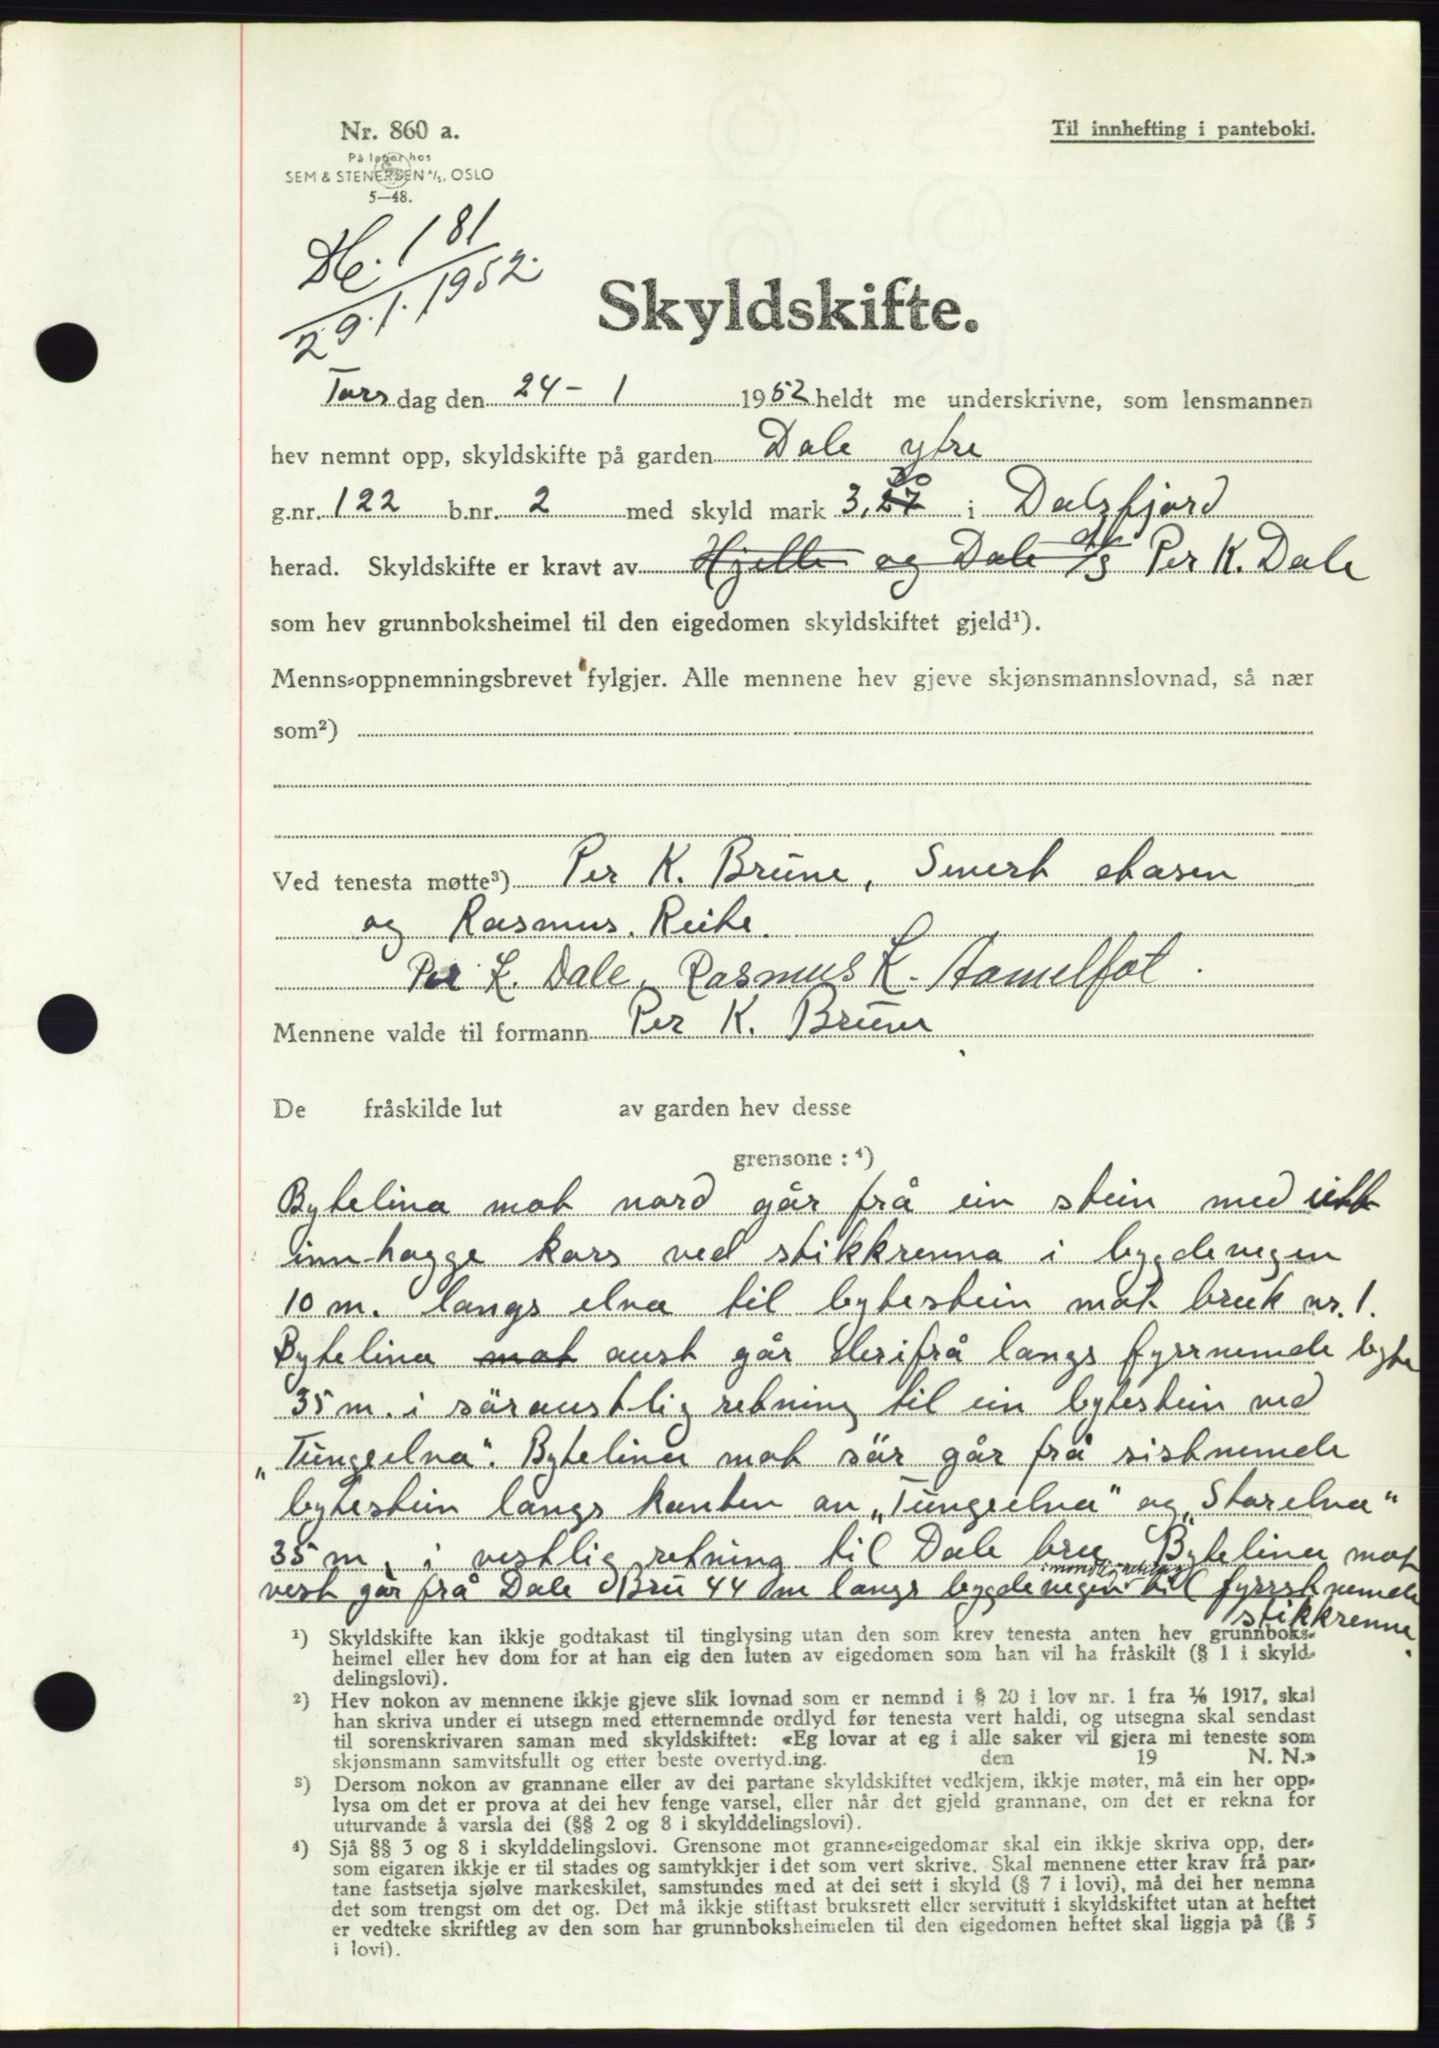 Nr. 860 a.
Til innhefting i panteboki.
På lager hos
SEM & STENERSEN A/S, OSLO
5—48.
181
29.1.1952.
Skyldskifte.
Torsdag den 24 – 1 1952 heldt me underskrivne, som lensmannen
hev nemnt opp, skyldskifte på garden Dale ytre
30
g.nr. 122 b.nr. 2 med skyld mark 3,27 i Dalsfjord
herad. Skyldskifte er kravt av Hjelle og Dale Per K. Dale
som hev grunnboksheimel til den eigedomen skyldskiftet gjeld¹).
Menns-oppnemningsbrevet fylgjer. Alle mennene hev gjeve skjønsmannslovnad, så nær
som²)
Ved tenesta møtte³) Per K. Brune, Sivert
og Rasmus Reite.
Per L. Dale, Rasmus K. Aamelfot.
Mennene valde til formann Per K. Brune
De fråskilde lut av garden hev desse
grensone : ⁴)
Bytelina mot nord går frå ein stein med
innhogge kors ved stikkrenna i bygdevegen
10 m. langs elva til bytestein mot bruk nr. 1.
Bytelina mot aust går derifrå langs fyrrnemde byte
35 m. i søraustlig retning til ein bytestein ved
„Tungeelva". Bytelina mot sør går frå sistnemde
bytestein langs kanten av „Tungeelva" og „Storelva"
35 m. i vestlig retning til Dale bru. Bytelina mot
vest går frå Dale Bru 44 m langs bygdevegen til fyrrstnemde
stikkrenne.
¹) Skyldskifte kan ikkje godtakast til tinglysing utan den som krev tenesta anten hev grunnboks-
heimel eller hev dom for at han eig den luten av eigedomen som han vil ha fråskilt (§ 1 i skyld-
delingslovi).
²) Hev nokon av mennene ikkje gjeve slik lovnad som er nemnd i § 20 i lov nr. 1 fra 1/6 1917, skal
han skriva under ei utsegn med etternemnde ordlyd før tenesta vert haldi, og utsegna skal sendast
til sorenskrivaren saman med skyldskiftet: «Eg lovar at eg i alle saker vil gjera mi teneste som
skjønsmann samvitsfullt og etter beste overtyding. den 19 N. N.»
³) Dersom nokon av grannane eller av dei partane skyldskiftet vedkjem, ikkje møter, må ein her opp-
lysa om det er prova at dei hev fenge varsel, eller når det gjeld grannane, om det er rekna for
uturvande å varsla dei (§§ 2 og 8 i skylddelingslovi).
⁴) Sjå §§ 3 og 8 i skylddelingslovi. Grensone mot granne-eigedomar skal ein ikkje skriva opp, der-
som eigaren ikkje er til stades og samtykkjer i det som vert skrive. Skal mennene etter krav frå par-
tane fastsetja sjølve markeskilet, samstundes med at dei sett i skyld (§ 7 i lovi), må dei her nemna
det som trengst om det og. Det må ikkje stiftast bruksrett eller servitutt i skyldskiftet utan at heftet
er vedteke skriftleg av den som har grunnboksheimelen til den eigedomen heftet skal liggja på (§ 5
i lovi).